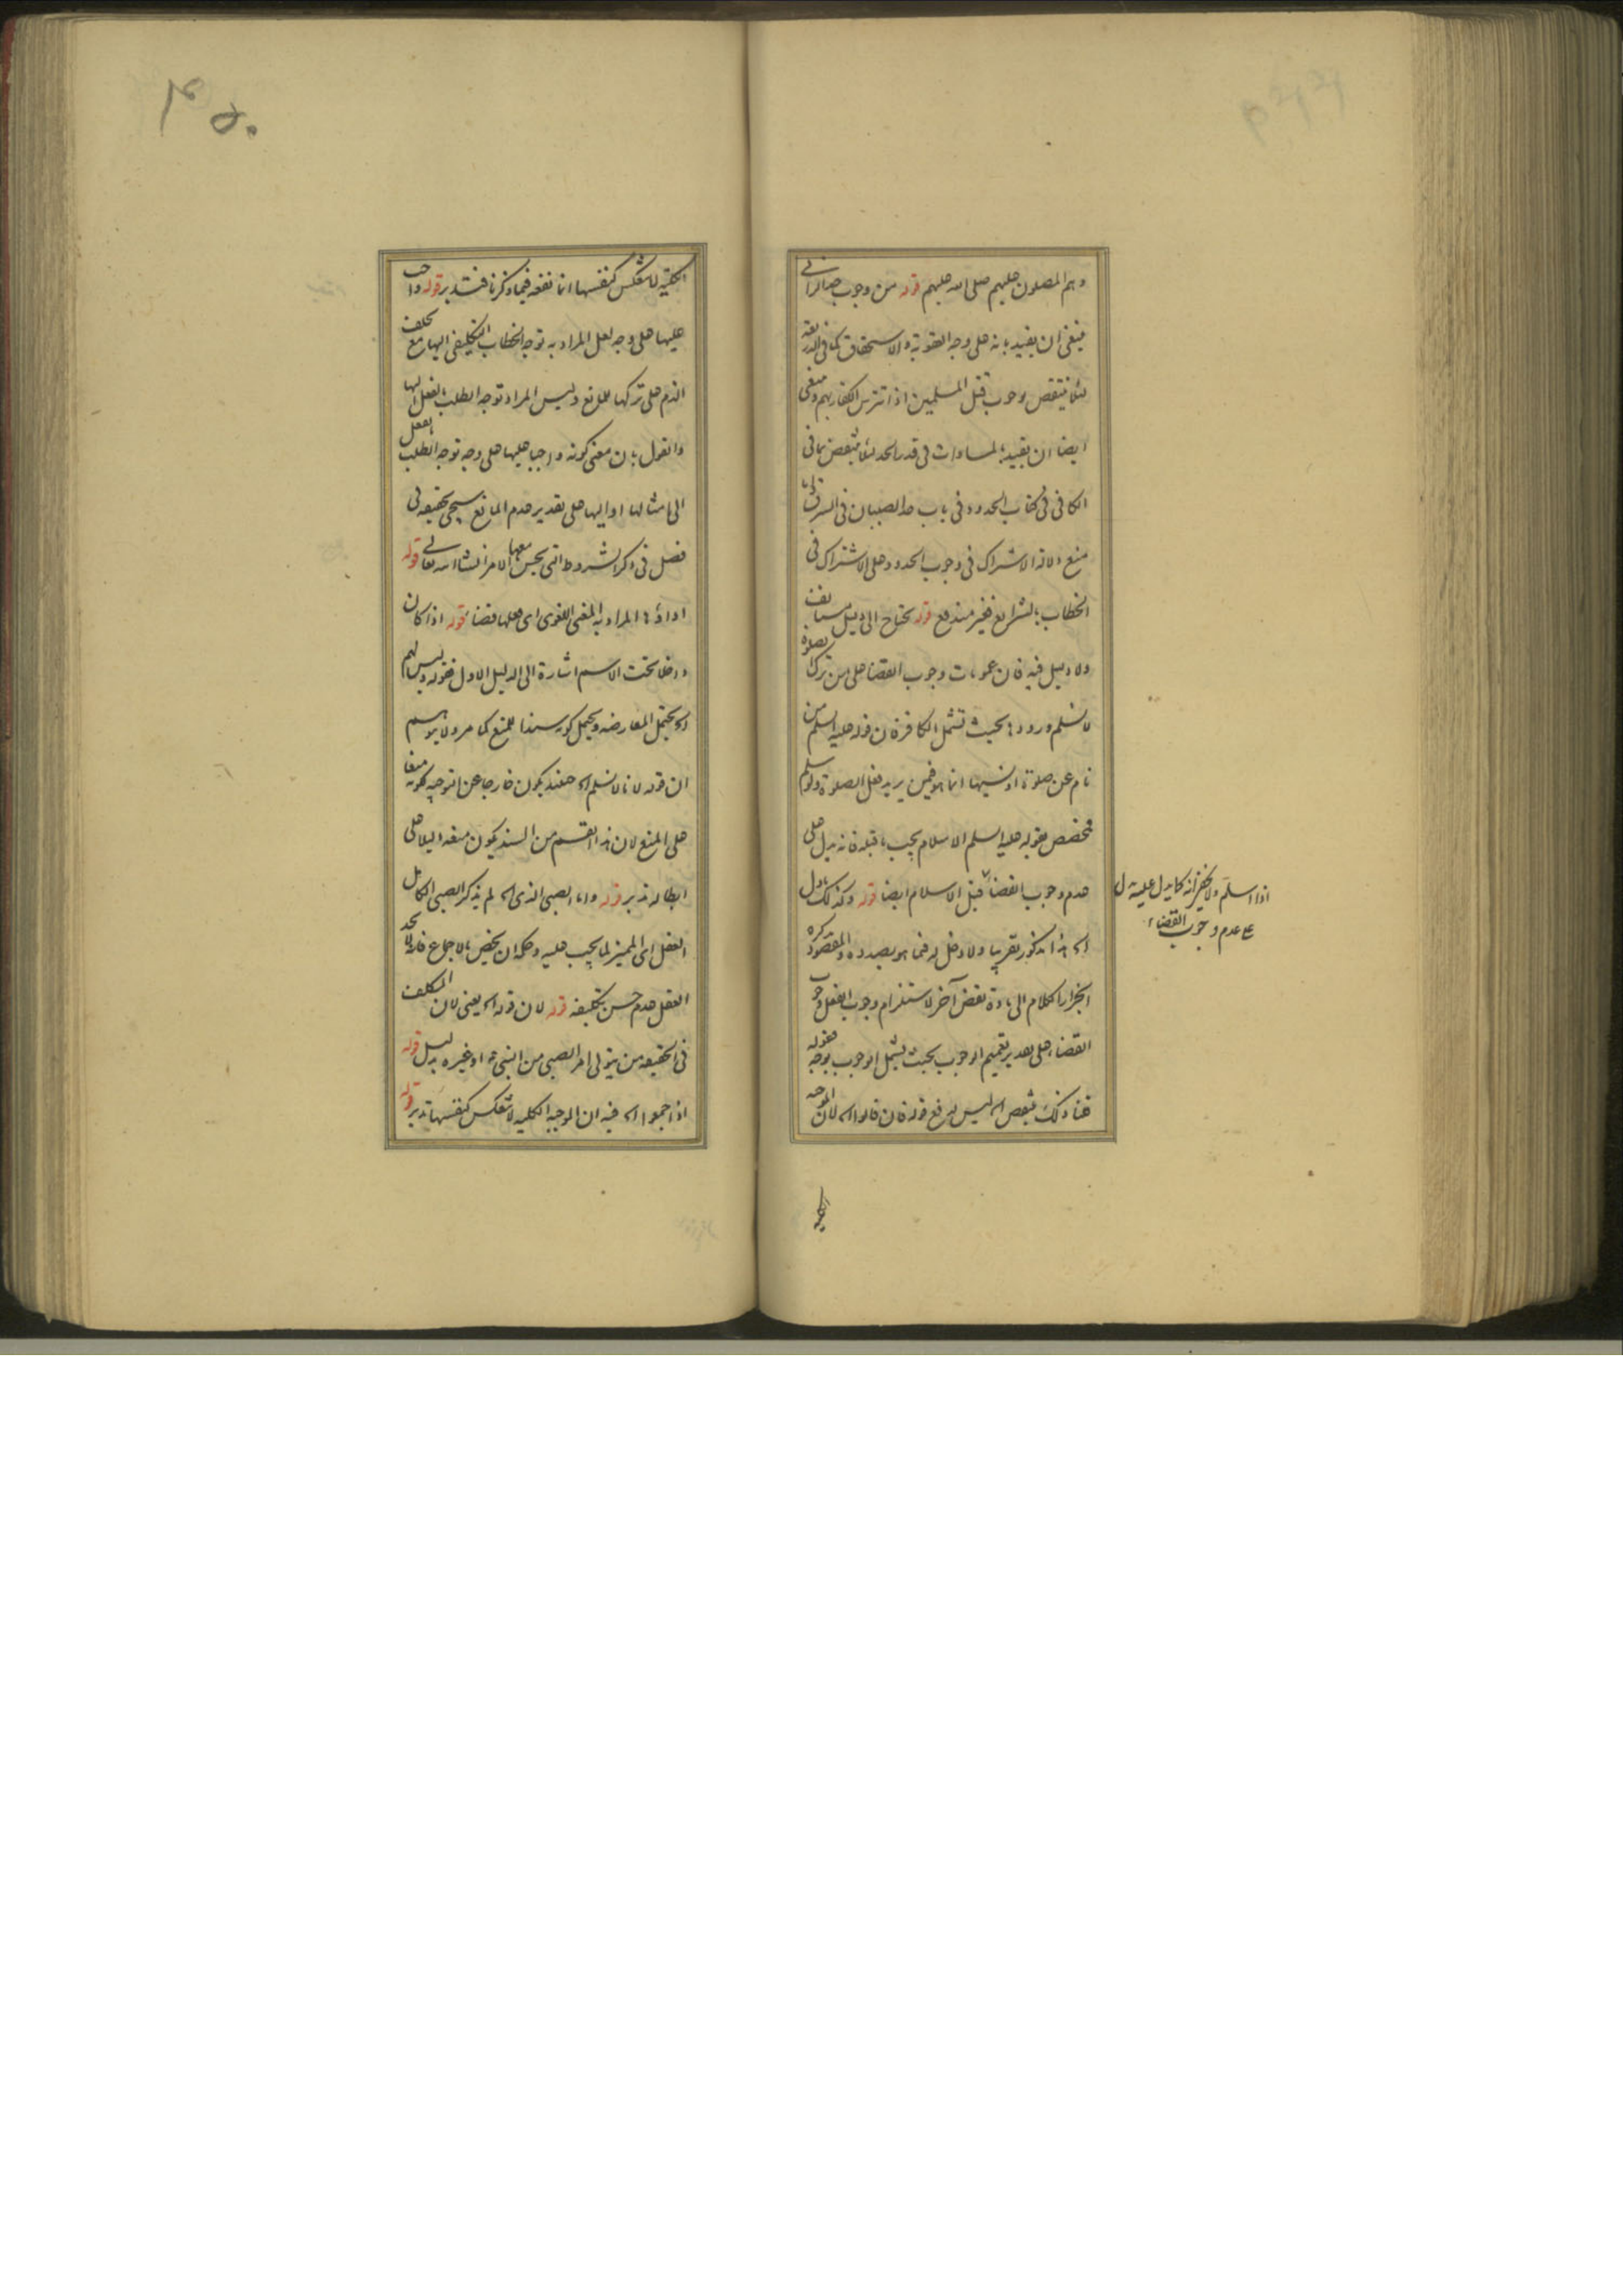 وهم المصلون عليهم صلى الله عليهم قوله من وجوب حد الزاني
فينبغي ان يقيد بانه على وجه العقوبة والاستحقاق كما في
لئلا ينتقض بوجوب قتل المسلمين اذا تترس الكفار بهم وينبغي
ايضا ان يقيد بالمساوات في قدر الحد لئلا ينتقض بما في
الكافي في كتاب الحدود في باب حد الصبيان في السرقة
منع دلالة الاشتراك في وجوب الحدود على الاشتراك في
الخطاب بالشرايع فغير مندفع قوله يحتاج الى دليل مستانف
ولا دليل فيه فان عمومات وجوب القضا على من ترك الصلوة
لا نسلم ورودها بحيث تشمل الكافر فان قوله عليه السلم من
نام عن صلوة او نسيها انما هو فيمن يريد فعل الصلوة ولو سلم
فمخصص بقوله عليه السلم الاسلام يجب ما قبله فانه يدل على
عدم وجوب القضاء قبل الاسلام ايضا قوله وكذلك
اذا اسلم ولا
على عدم وجوب القضاء
اه هذا مذكور تقريبا ولا دخل له فيما هو بصدد ذكره والمقصود
انجرار الكلام الى مادة نقض آخر لاستلزام وجوب الفعل وجوب
القضاء على تقدير تعميم الوجوب بحيث يشمل الوجوب بوجه فقوله
قلنا ذلك ينتقض اه ليس لدفع قوله فان قالوا اه لان الموجبة
الكلية
۴۵۰
الكلية لا تنعكس كنفسها انما نفعه فيما ذكرنا فتدبر قوله واجب
عليها على وجه لعل المراد به توجه الخطاب التكليفي اليها مع تخلف
الذم على تركها للمانع وليس المراد توجه الطلب بالفعل اليها
والقول بان معنى كونه واجبا عليها على وجه توجه الطلب بالفعل
الى امثالها او اليها على تقدير عدم المانع سيجئ تحقيقه في
فصل في ذكر الشروط التي يحسن معها الامر انشاء الله تعالى قوله
اداؤها المراد به المعنى اللغوي اي فعلها قضاء قوله اذا كان
داخلا تحت الاسم اشارة الى الدليل الاول فقوله وليس لهم
اه يحتمل المعارضه ويحتمل كونه سندا للمنع كما مر ولا يتوهم
ان قوله لانا لا نسلم اه حينئذ يكون خارجا عن التوجيه لكونه منعا
على المنع لان هذا القسم من السند يكون منعه دليلا على
ابطاله تدبر قوله واما الصبي الذي اه لم يذكر الصبي الكامل
العقل اى المميز لما يجب عليه وحكمه ان يخص بالاجماع فانه لا يجد
العقل عدم حسن تكليفه قوله لان قوله اه يعني لان المكلف
في الحقيقه من يتولى امر الصبي من النبي ص او غيره بدليل قوله
اذا جمعوا اه فيه ان الموجبه الكليه لا تنعكس كنفسها تدبر قوله